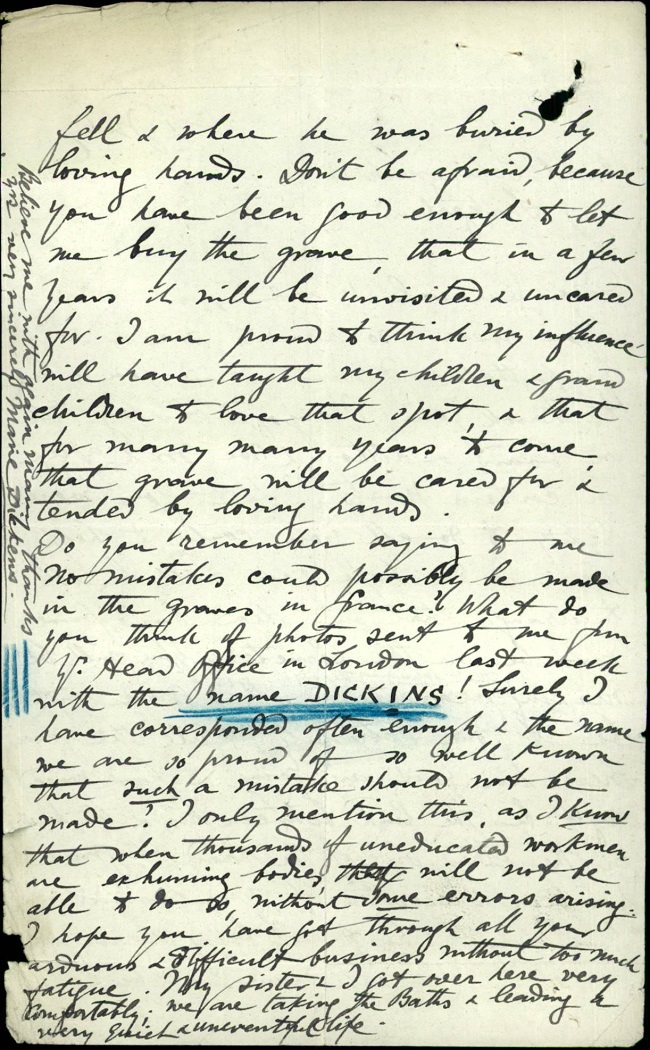 fell & where he was buried by
loving hands. Don't be afraid, because
you have been good enough to let
me buy the grave, that in a few
years it will be unvisited & uncared
for. I am proud to think my influence
will have taught my children & grand
children to love that spot, & that
for many many years to come
that grave will be cared for &
tended by loving hands.
Do you remember saying to me
no mistakes could possibly be made
in the graves in France? What do
you think of photos sent to me from
yr. Head Office in London last week
with the name DICKINS! Surely I
have corresponded often enough & the name
we are so proud of so well known
that such a mistake should not be
made? I only mention this, as I know
that when thousands of uneducated workmen
are exhuming bodies they will not be
able to do so, without some errors arising.
I hope you have got through all your
arduous & difficult business without too much
fatigue. My sister & I got over here very
comfortably; we are taking the Baths & leading a
very quiet & uneventful life.
Believe me with again many thanks
yrs very sincerely Marie Dickens.